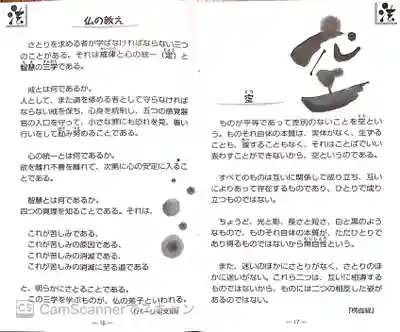 法
仏の教え
さとりを求める者が学ばなければならない三つ
のことがある。それは戒律と心の統一（定）と
智慧の三学である。
戒とは何であるか。
人として、また道を修める者として守らなければ
ならない戒を保ち、心身を統制し、五つの感覚器
官の入口を守って、小さな罪にも恐れを見、善い
行いをして励み努めることである。
心の統一とは何であるか。
欲を離れ不善を離れて、次第に心の安定に入るこ
とである。
智慧とは何であるか。
四つの真理を知ることである。それは、
これが苦しみである、
これが苦しみの原因である、
これが苦しみの消滅である、
これが苦しみの消滅に至る道である
と、明らかにさとることである。
この三学を学ぶものが、仏の弟子といわれる。
CS CamScanner
― 16 ―
法
空
空
ものが平等であって差別のないことを空とい
う。ものそれ自体の本質は、実体がなく、生ずる
ことも、滅することもなく、それはことばでいい
表わすことができないから、空というのである。
すべてのものは互いに関係して成り立ち、互い
によりあって存在するものであり、ひとりで成り
立つものではない。
ちょうど、光と影、長さと短さ、白と黒のよう
なもので、ものそれ自体の本質が、ただひとりで
あり得るものではないから無自性という。
また、迷いのほかにさとりがなく、さとりのほ
かに迷いがない。これら二つは、互いに相違する
ものではないから、ものには二つの相反した姿が
あるのではない。
『楞伽経』
― 17 ―